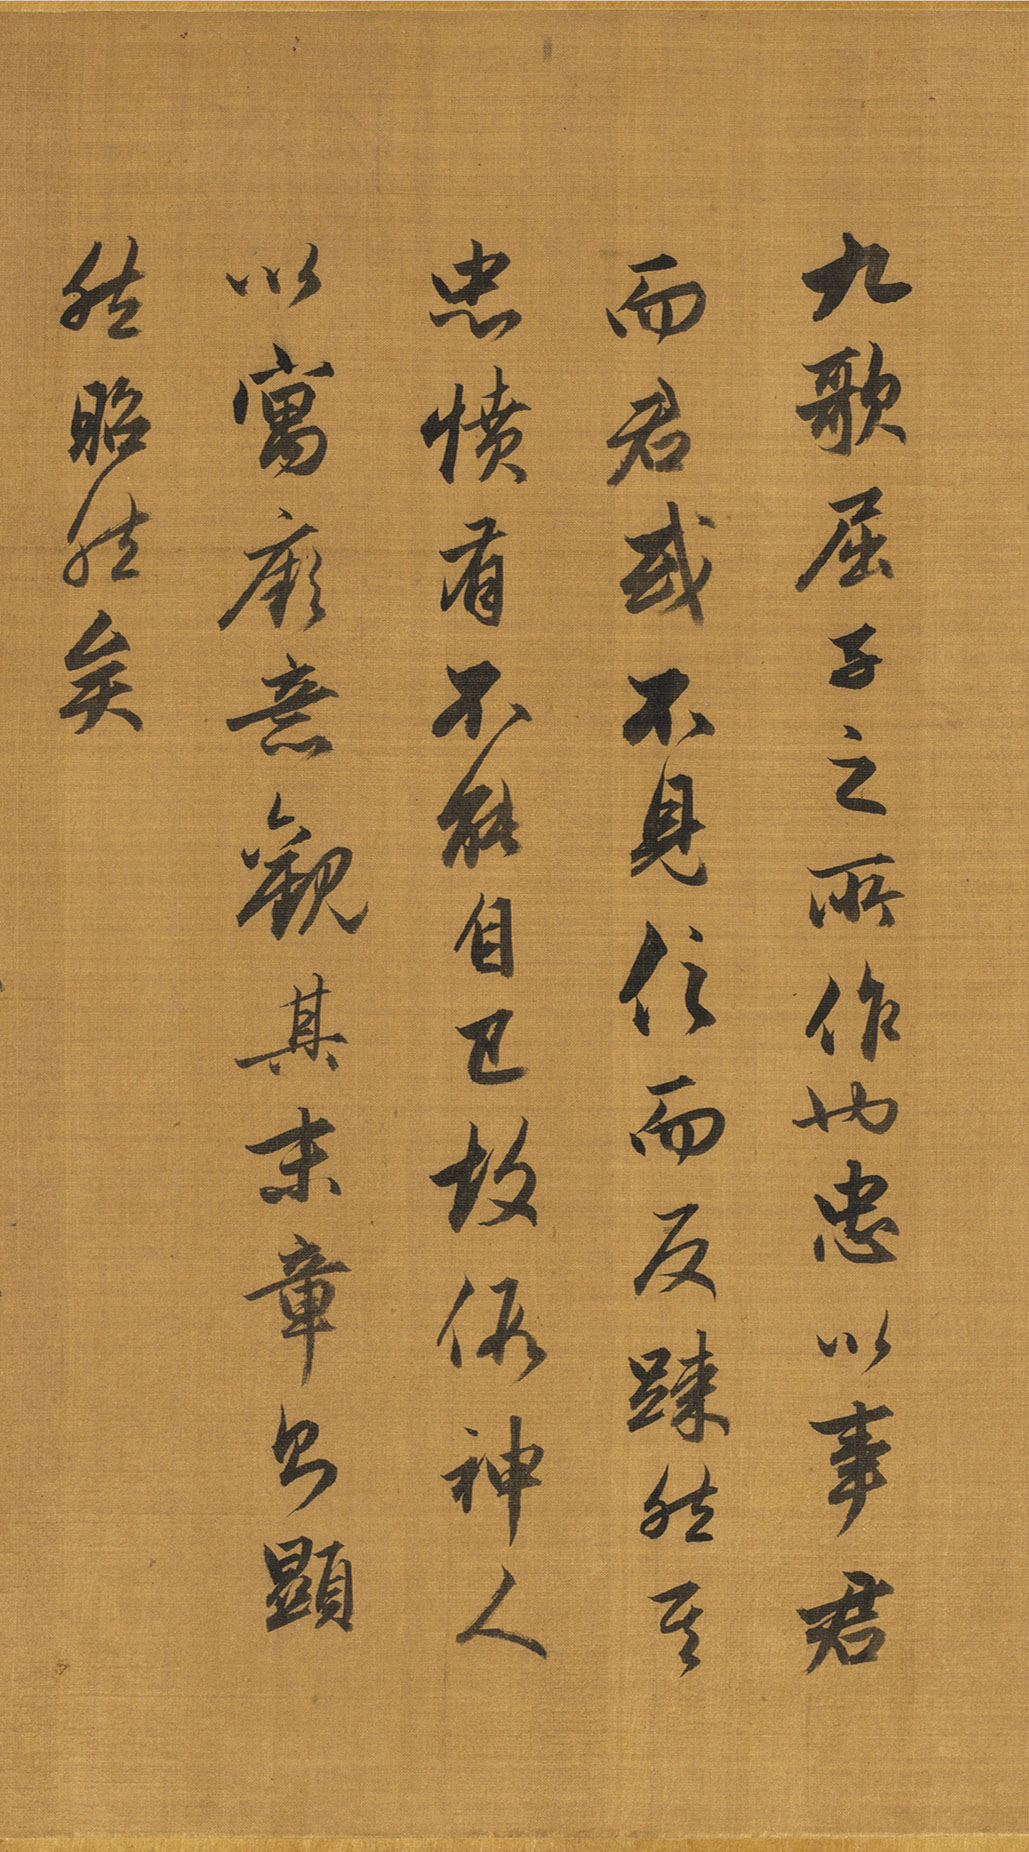 九歌屈子之所作也忠以事君
而君或不見信而反踈然其
忠憤有不能自已故假神人
以寓厥意觀其末章則顯
然昭然矣